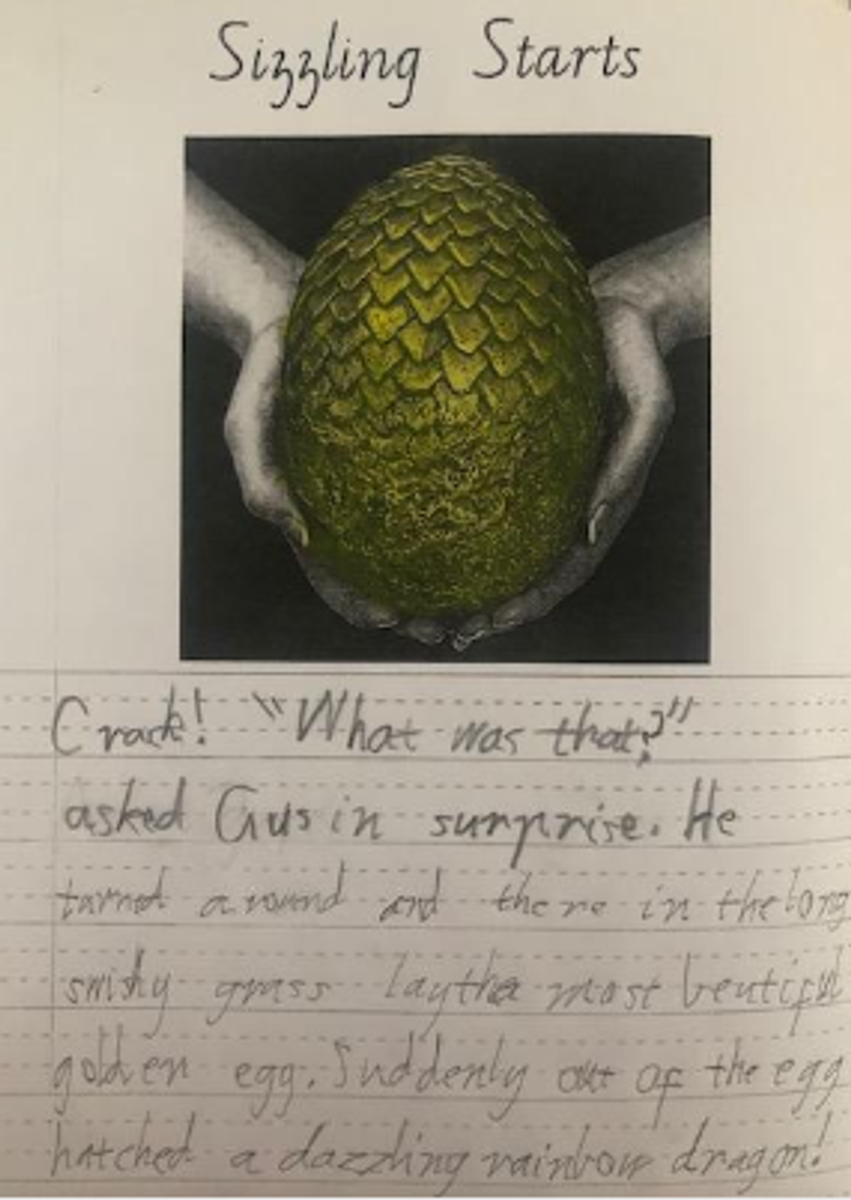 Sizzling Starts
Crack! "What was that?"
asked Gus in surprise. He
turned around and there in the long
swishy grass lay the most beutiful
golden egg. Suddenly out of the egg
hatched a dazzling rainbow dragon!